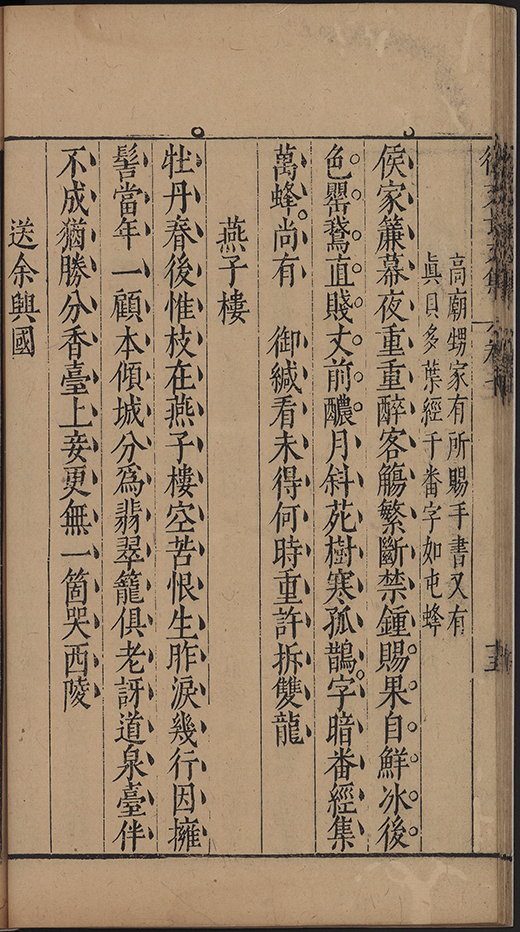 高廟甥家有所賜手書又有
眞貝多葉經千番字如屯蜂
侯家簾幕夜重重醉客觴繁斷禁鍾賜果自鮮冰後
色罌鵞直賤丈前醲月斜苑樹寒孤鵲字暗番經集
萬蜂尚有　御緘看未得何時重許拆雙龍
燕子樓
牡丹春後惟枝在燕子樓空苦恨生昨淚幾行因擁
髻當年一顧本傾城分爲翡翠籠俱老訝道泉臺伴
不成猶勝分香臺上妾更無一箇哭西陵
送余興國